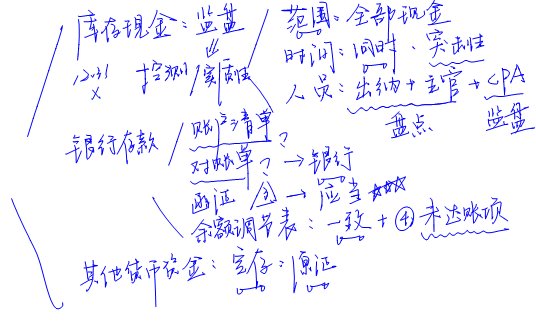 库存现金：监盘
12.31 控测/实质性
x
范围：全部现金
时间：同时、突击性
人员：出纳+主管+CPA
盘点 监盘
银行存款
账户清单？
对账单？→银行
函证 全→应当☆☆☆
余额调节表：一致+④未达账项
其他货币资金：定存：原证